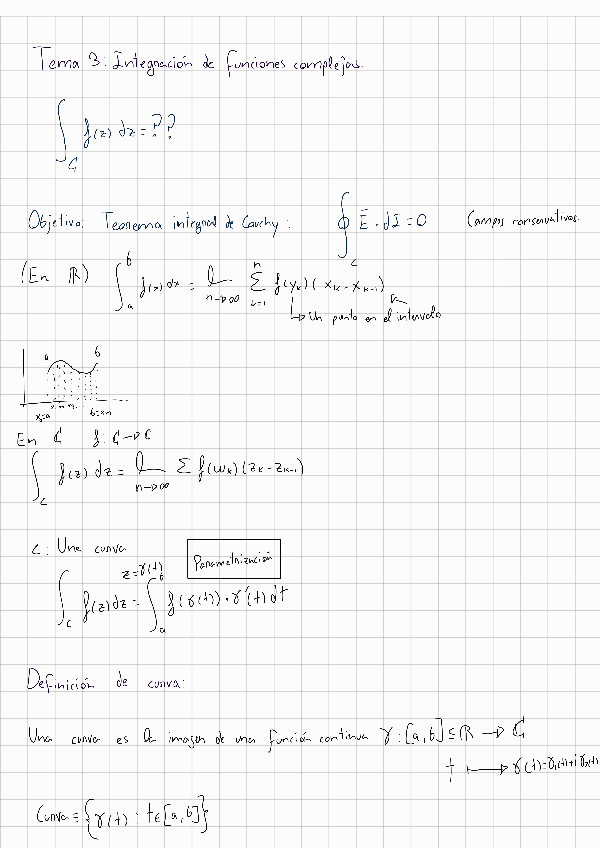 Tema 3: Integración de funciones complejas.
∫_C f(z) dz = ??
Objetivo: Teorema integral de Cauchy: ∮_C E · dl = 0 Campos conservativos.
(En ℝ) ∫_a^b f(x) dx = lim_{n→∞} Σ_{k=1}^n f(y_k)(x_k - x_{k-1})
↳ Un punto en el intervalo
a b
x_0=a x_1 b=x_n
En ℂ f: ℂ → ℂ
∫_C f(z) dz = lim_{n→∞} Σ f(w_k)(z_k - z_{k-1})
C: Una curva Parametrización
z=γ(t)
∫_C f(z) dz = ∫_a^b f(γ(t)) · γ'(t) dt
Definición de curva:
Una curva es la imagen de una función continua γ: [a,b] ⊆ ℝ → ℂ
t ⟼ γ(t)=γ_1(t)+i γ_2(t)
Curva = {γ(t) : t∈[a,b]}